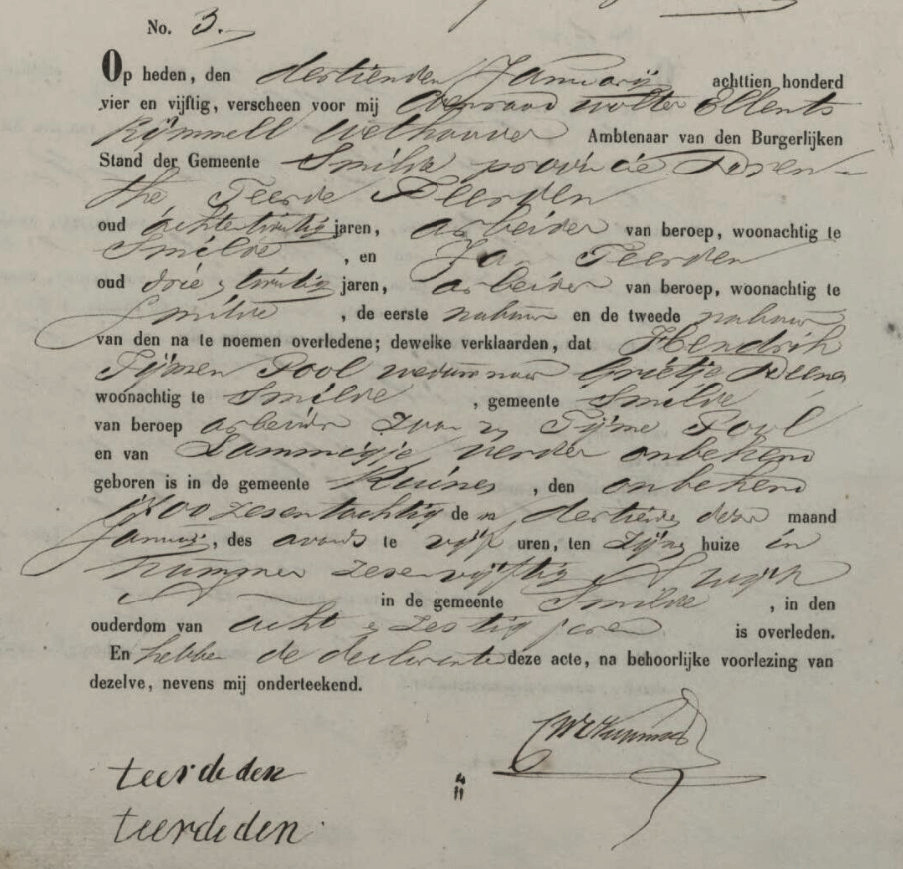 No. 3.
Op heden, den dertienden Januarij achttien honderd
vier en vijftig, verscheen voor mij Coenraad Wolter Ellents
Kijmmell Wethouder Ambtenaar van den Burgerlijken
Stand der Gemeente Smilde provincie Dren-
the, Teerde Deerden
oud achtentwintig jaren, arbeider van beroep, woonachtig te
Smilde, en Jan Teerden
oud drie & twintig jaren, arbeider van beroep, woonachtig te
Smilde, de eerste nabuur en de tweede nabuur
van den na te noemen overledene; dewelke verklaarden, dat Hendrik
Tijmen Pool weduwnaar Grietje
woonachtig te Smilde, gemeente Smilde
van beroep arbeider Zoon v Tijme Pool
en van Lammigje verder onbekend
geboren is in de gemeente Ruinen, den onbekend
1700 zesentachtig de n dertiende dezer maand
Januarij, des avonds te vijf uren, ten zijne huize in
nummer zesenvijftig wijk
A in de gemeente Smilde, in den
ouderdom van acht & zestig jaren is overleden.
En hebben de declarante deze acte, na behoorlijke voorlezing van
dezelve, nevens mij onderteekend.
teerdeden
teerdeden